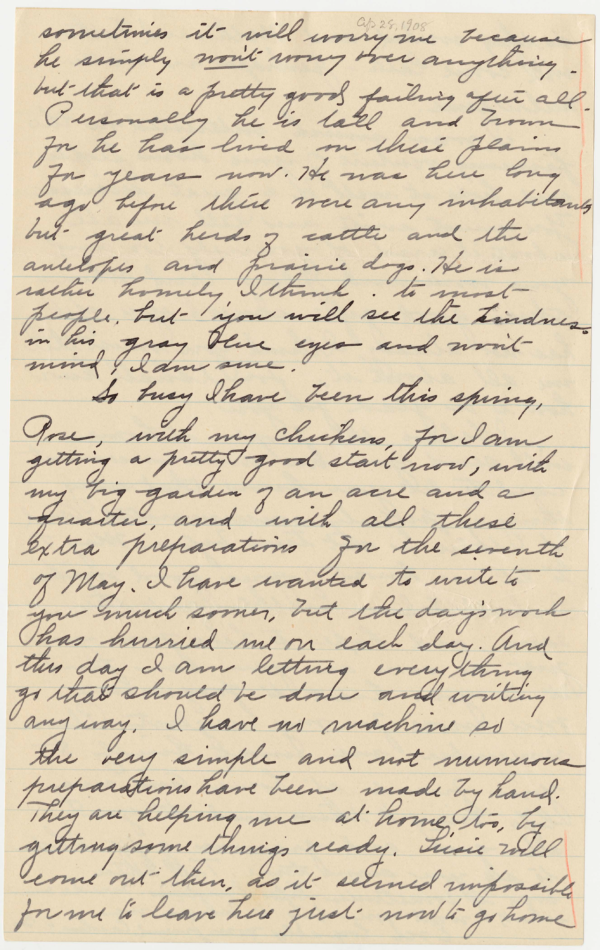 Ap 28, 1908
sometimes it will worry me because
he simply won't worry over anything.
but that is a pretty good failing after all.
Personally he is tall and brown
for he has lived on these plains
for years now. He was here long
ago before there were any inhabitants
but great herds of cattle and the
antelopes and prairie dogs. He is
rather homely, I think. to most
people. but you will see the kindness
in his gray blue eyes and won't
mind, I am sure.
So busy I have been this spring,
Rose, with my chickens, for I am
getting a pretty good start now, with
my big garden of an acre and a
quarter, and with all these
extra preparations for the seventh
of May. I have wanted to write to
you much sooner, but the day's work
has hurried me on each day. And
this day I am letting everything
go that should be done and writing
any way. I have no machine so
the very simple and not numerous
preparations have been made by hand.
They are helping me at home, too, by
getting some things ready. Susie will
come out then, as it seemed impossible
for me to leave here just now to go home